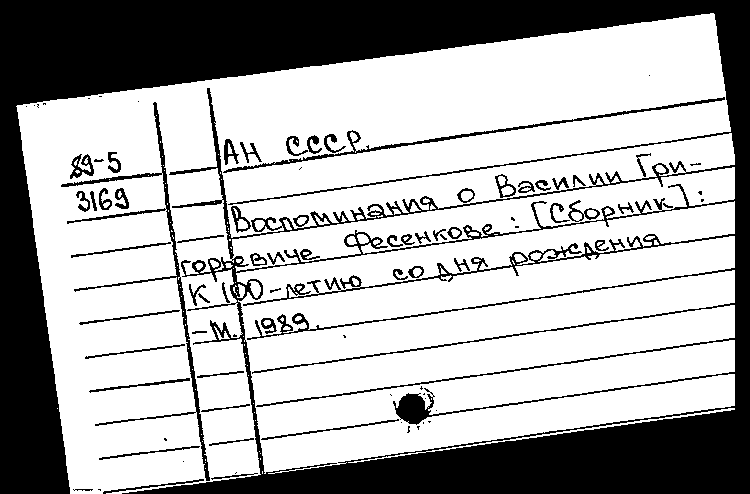 89-5
3169
АН СССР.
Воспоминания о Василии Гри-
горьевиче Фесенкове : [Сборник] :
К 100-летию со дня рождения
-М. 1989.